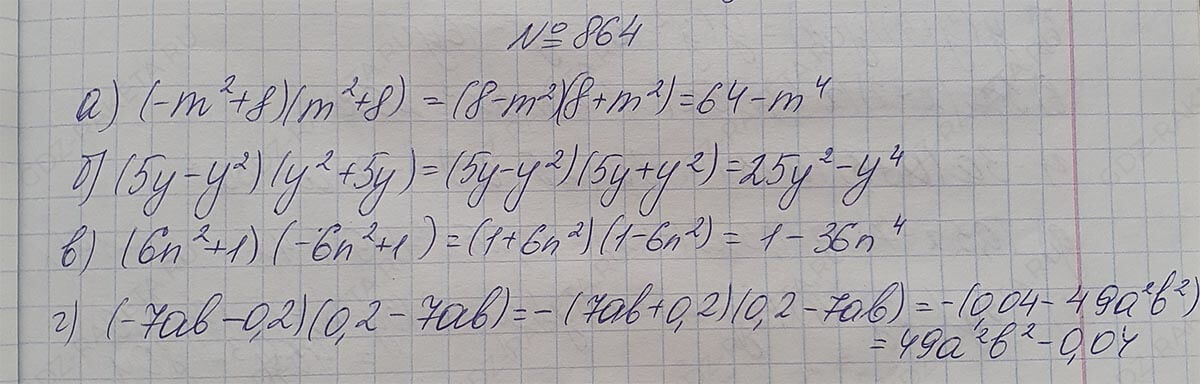 № 864
а) (-m²+8)(m²+8) = (8-m²)(8+m²) = 64-m⁴
б) (5y-y²)(y²+5y) = (5y-y²)(5y+y²) = 25y²-y⁴
в) (6n²+1)(-6n²+1) = (1+6n²)(1-6n²) = 1-36n⁴
г) (-7ab-0,2)(0,2-7ab) = -(7ab+0,2)(0,2-7ab) = -(0,04-49a²b²)
= 49a²b²-0,04